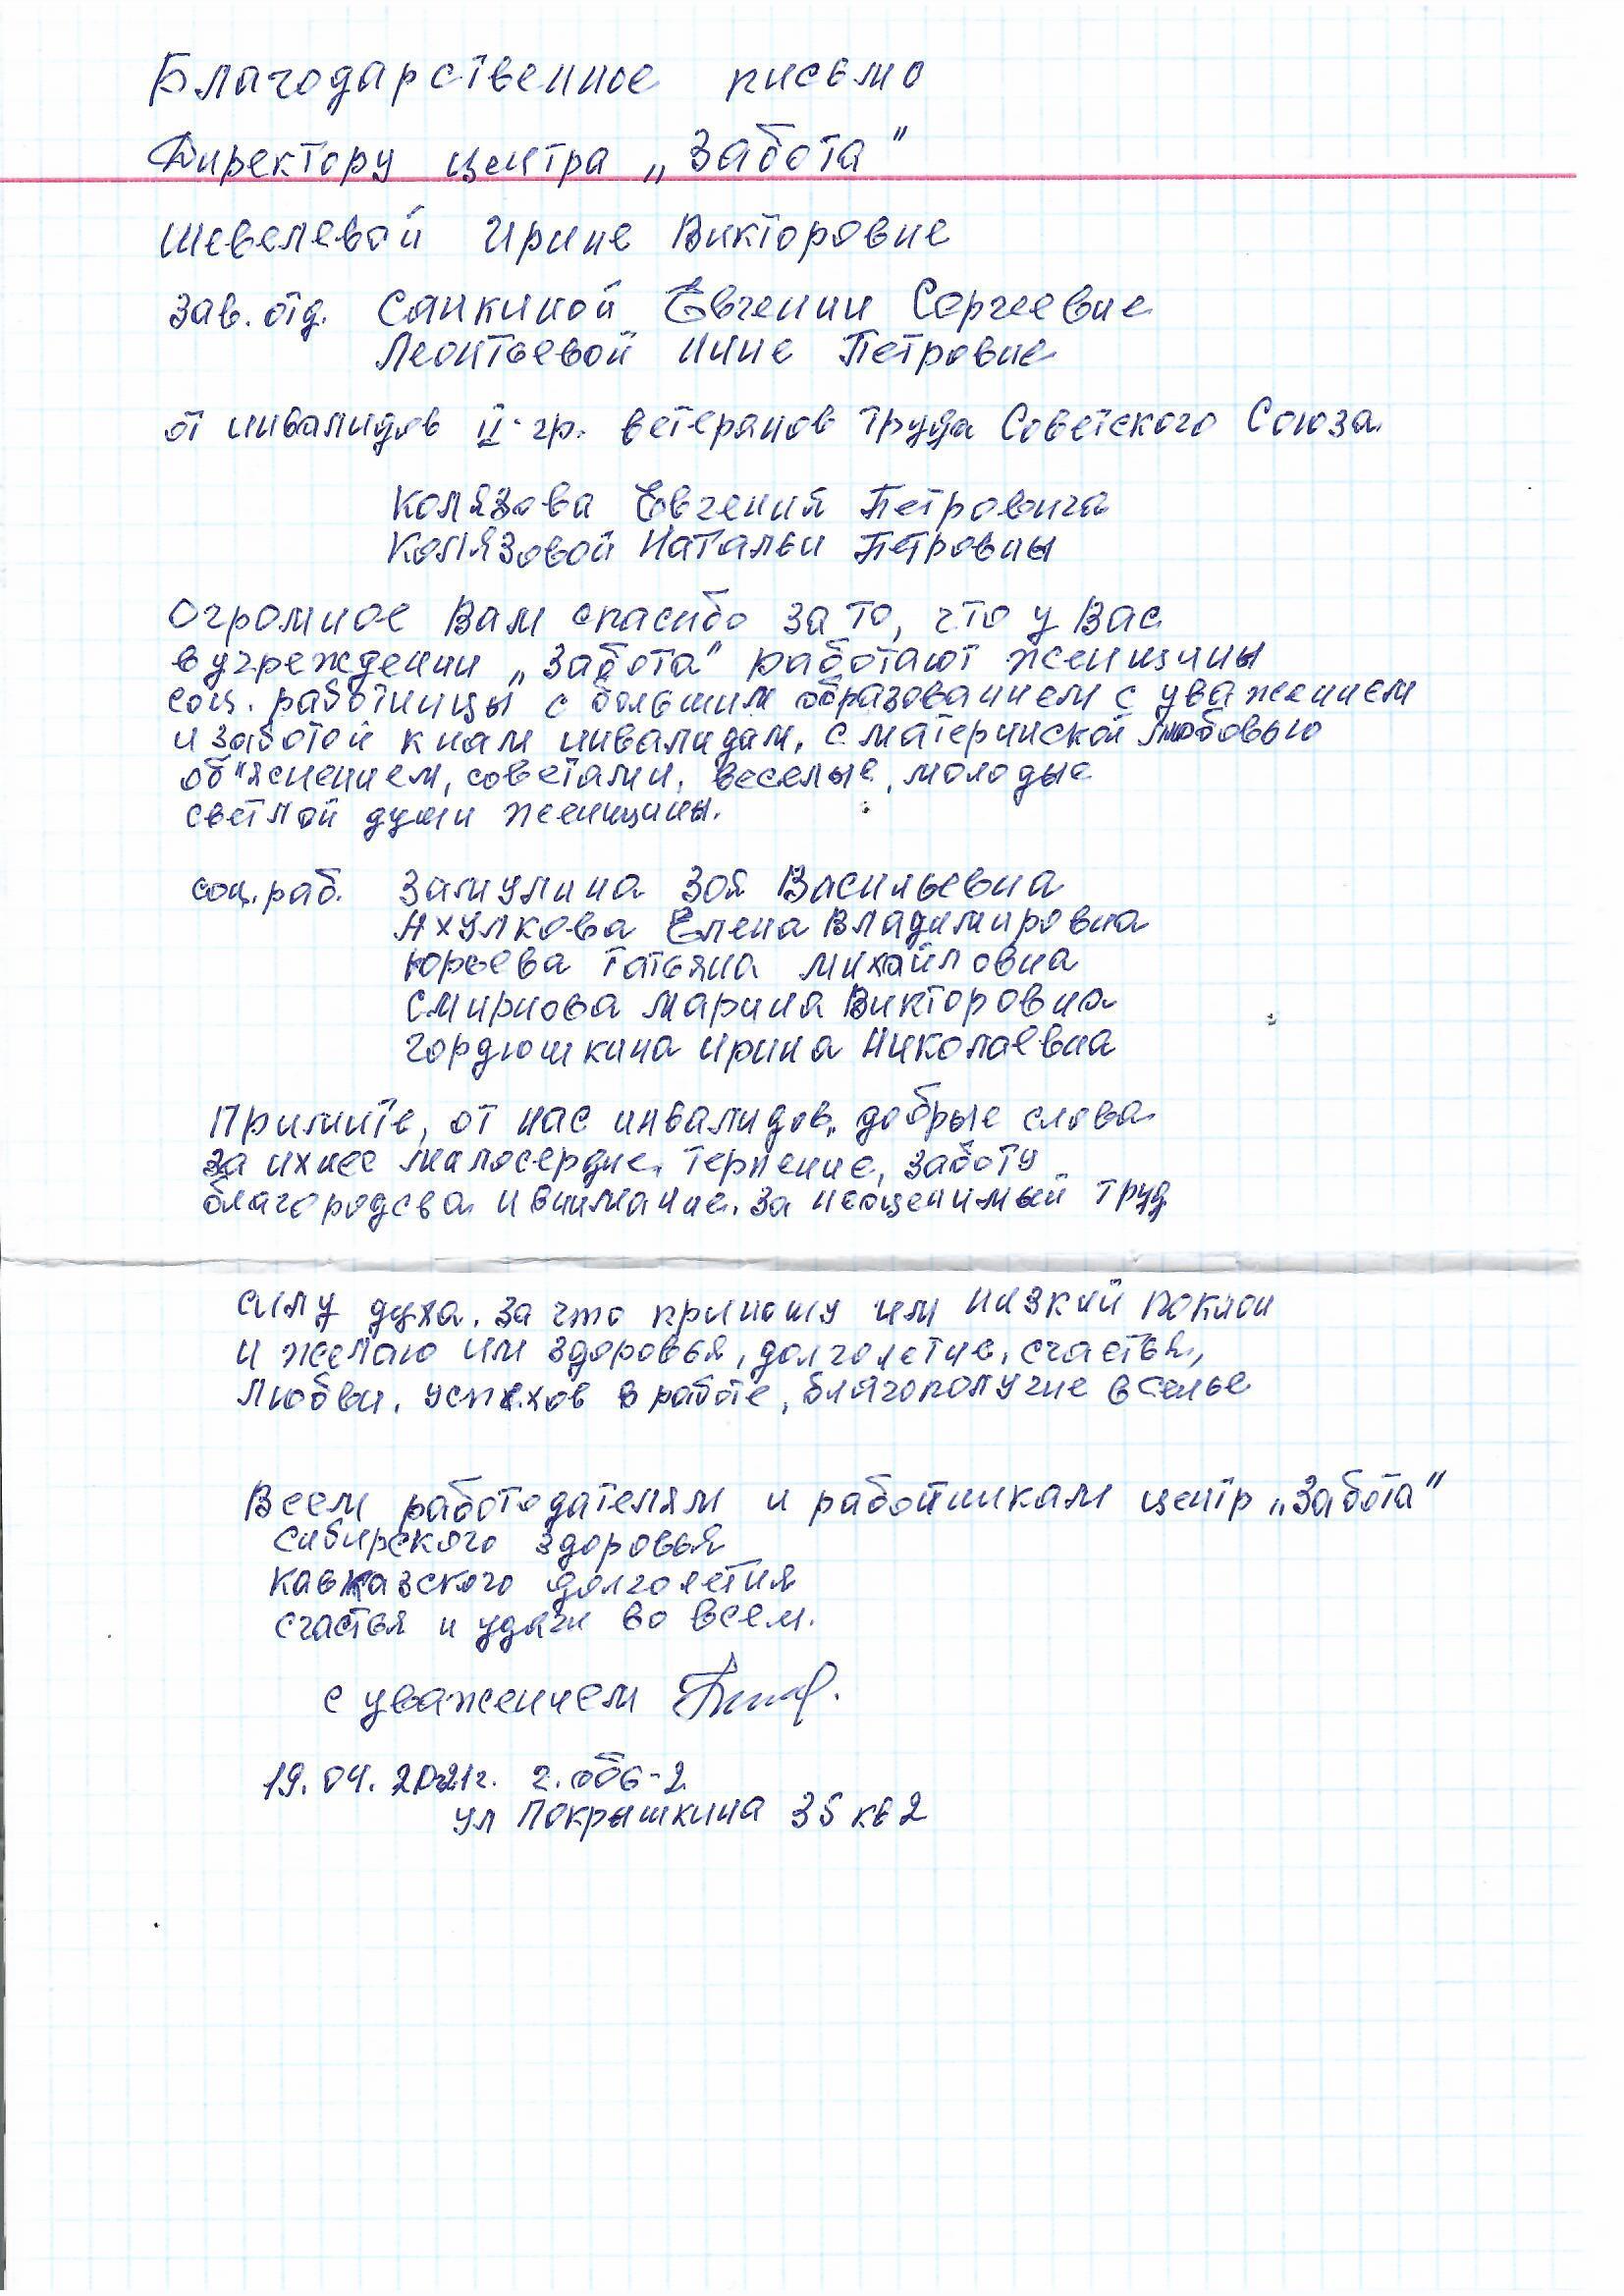 Благодарственное письмо
Директору центра „Забота"
Шевелевой Ирине Викторовне
зав. отд. Санкиной Евгении Сергеевне
Леонтьевой Нине Петровне
от инвалидов II-гр. ветеранов труда Советского Союза.
Колязова Евгений Петровича
Колязовой Натальи Петровны
Огромное Вам спасибо за то, что у Вас
в учреждении „Забота" работают женщины
соц. работницы с большим образованием с уважением
и заботой к нам инвалидам, с материнской любовью
об"яснением, советами, веселые, молодые
светлой души женщины.
соц. раб. Замулина Зоя Васильевна
Ахулкова Елена Владимировна
Юрьева Татьяна Михайловна
Смирнова Марина Викторовна
Гордюшкина Ирина Николаевна
Примите, от нас инвалидов, добрые слова
за ихнее милосердие, терпение, заботу
благородсва и внимание. за неоценимый труд
силу духа. за что приношу им низкий поклон
и желаю им здоровья, долголетие, счастья,
любви, успехов в работе, благополучие в семье
Всем работодателям и работникам центр „Забота"
Сибирского здоровья
Кавказского долголетия
счастья и удачи во всем.
с уважением
19.04.2021г. г. Обь-2
ул Покрышкина 35 кв 2